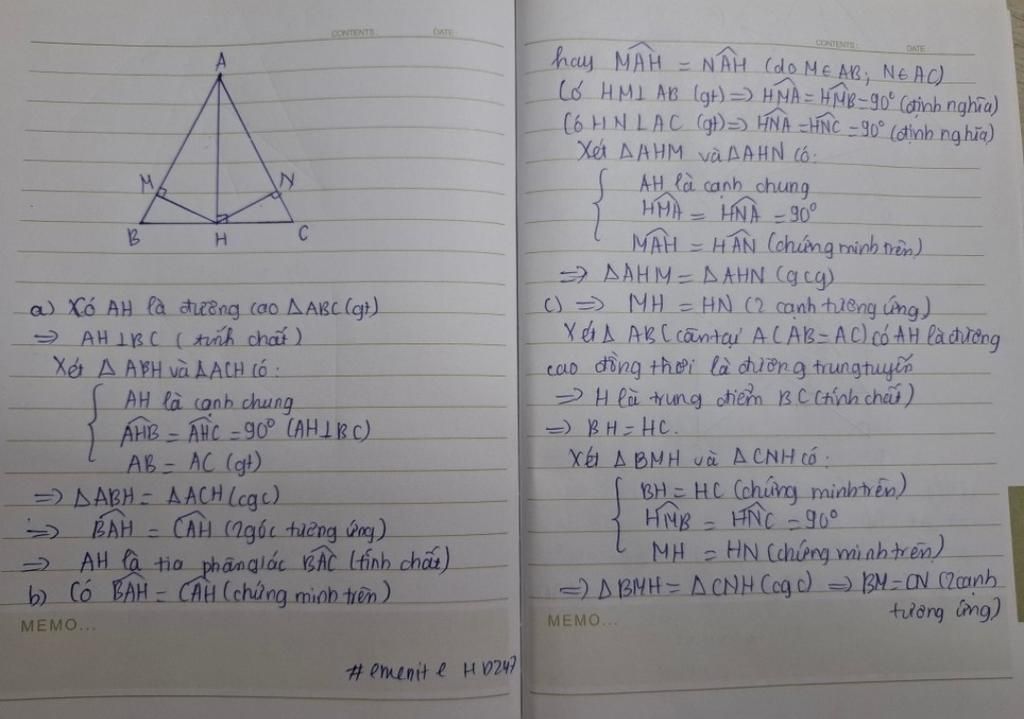 CONTENTS: DATE:
A
M
N
B
H
C
a) Xó AH là đường cao ΔABC (gt)
=> AH⊥BC (tính chất)
Xét ΔABH và ΔACH có:
AH là cạnh chung
AHB = AHC = 90° (AH⊥BC)
AB = AC (gt)
=> ΔABH = ΔACH (cgc)
=> BAH = CAH (2 góc tương ứng)
=> AH là tia phân giác BAC (tính chất)
b) Có BAH = CAH (chứng minh trên)
MEMO...
#ementle HD247
CONTENTS: DATE:
hay MAH = NAH (do M∈AB; N∈AC)
Có HM⊥AB (gt) => HMA = HMB = 90° (định nghĩa)
Có HN⊥AC (gt) => HNA = HNC = 90° (định nghĩa)
Xét ΔAHM và ΔAHN có:
AH là cạnh chung
HMA = HNA = 90°
MAH = HAN (chứng minh trên)
=> ΔAHM = ΔAHN (gcg)
c) => MH = HN (2 cạnh tương ứng)
Xét Δ ABC cân tại A (AB = AC) có AH là đường
cao đồng thời là đường trung tuyến
=> H là trung điểm BC (tính chất)
=> BH = HC.
Xét ΔBMH và ΔCNH có:
BH = HC (chứng minh trên)
HMB = HNC = 90°
MH = HN (chứng minh trên)
=> ΔBMH = ΔCNH (cgc) => BM = CN (2 cạnh
tương ứng)
MEMO...